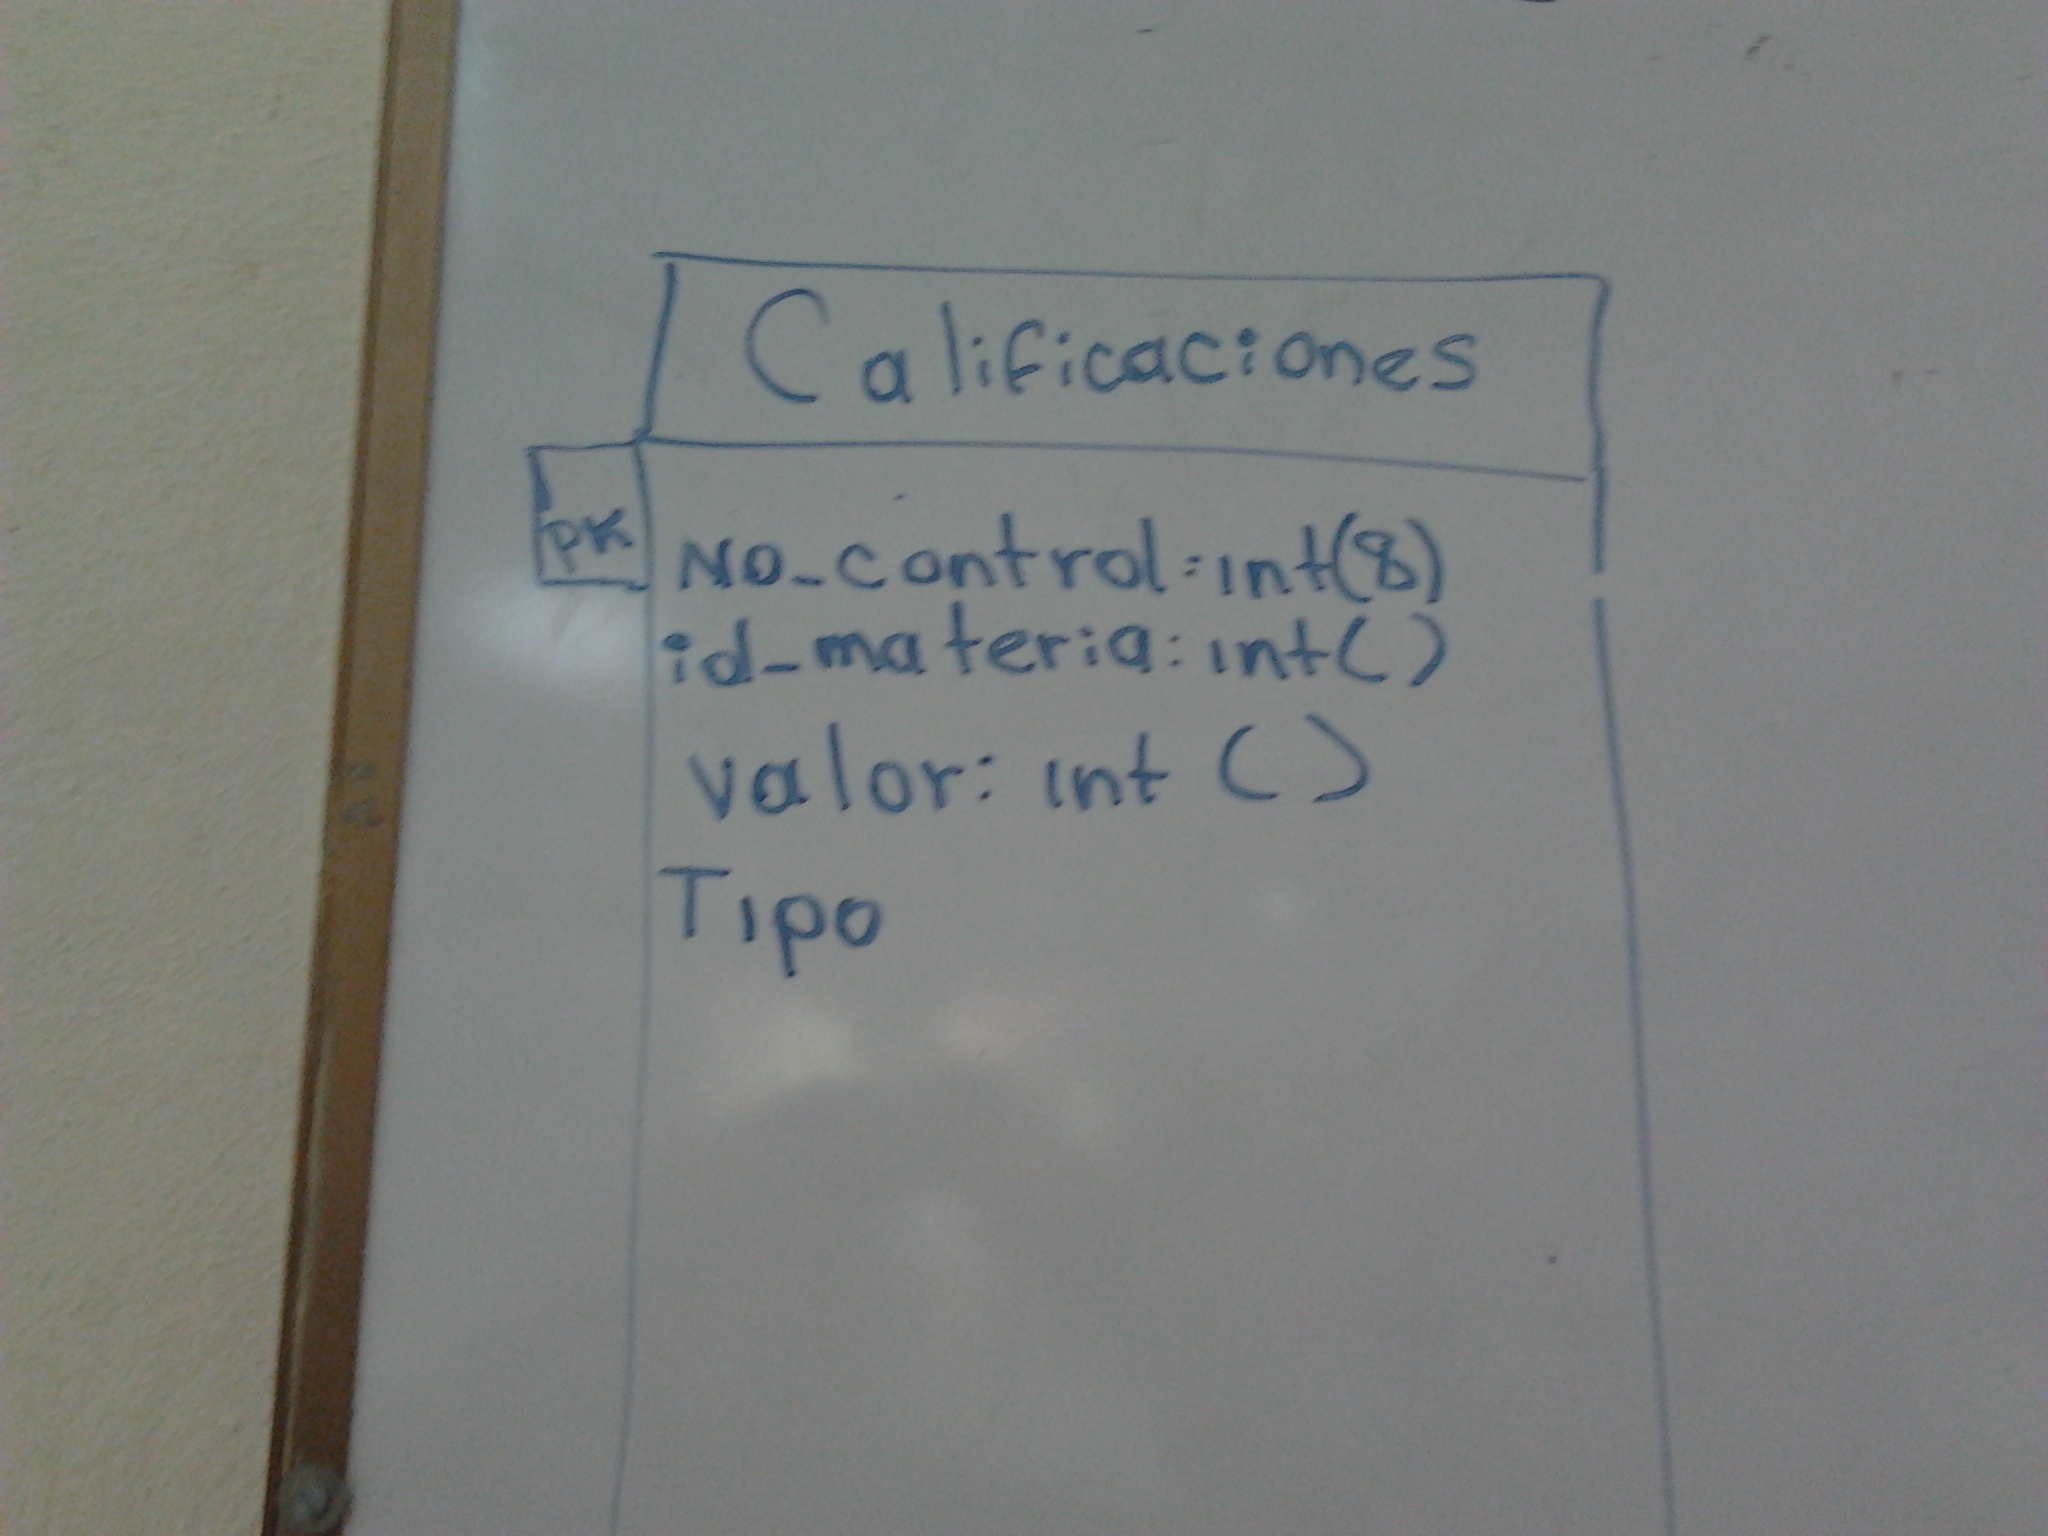 Calificaciones
PK No_control: int(8)
id_materia: int( )
valor: int ( )
Tipo